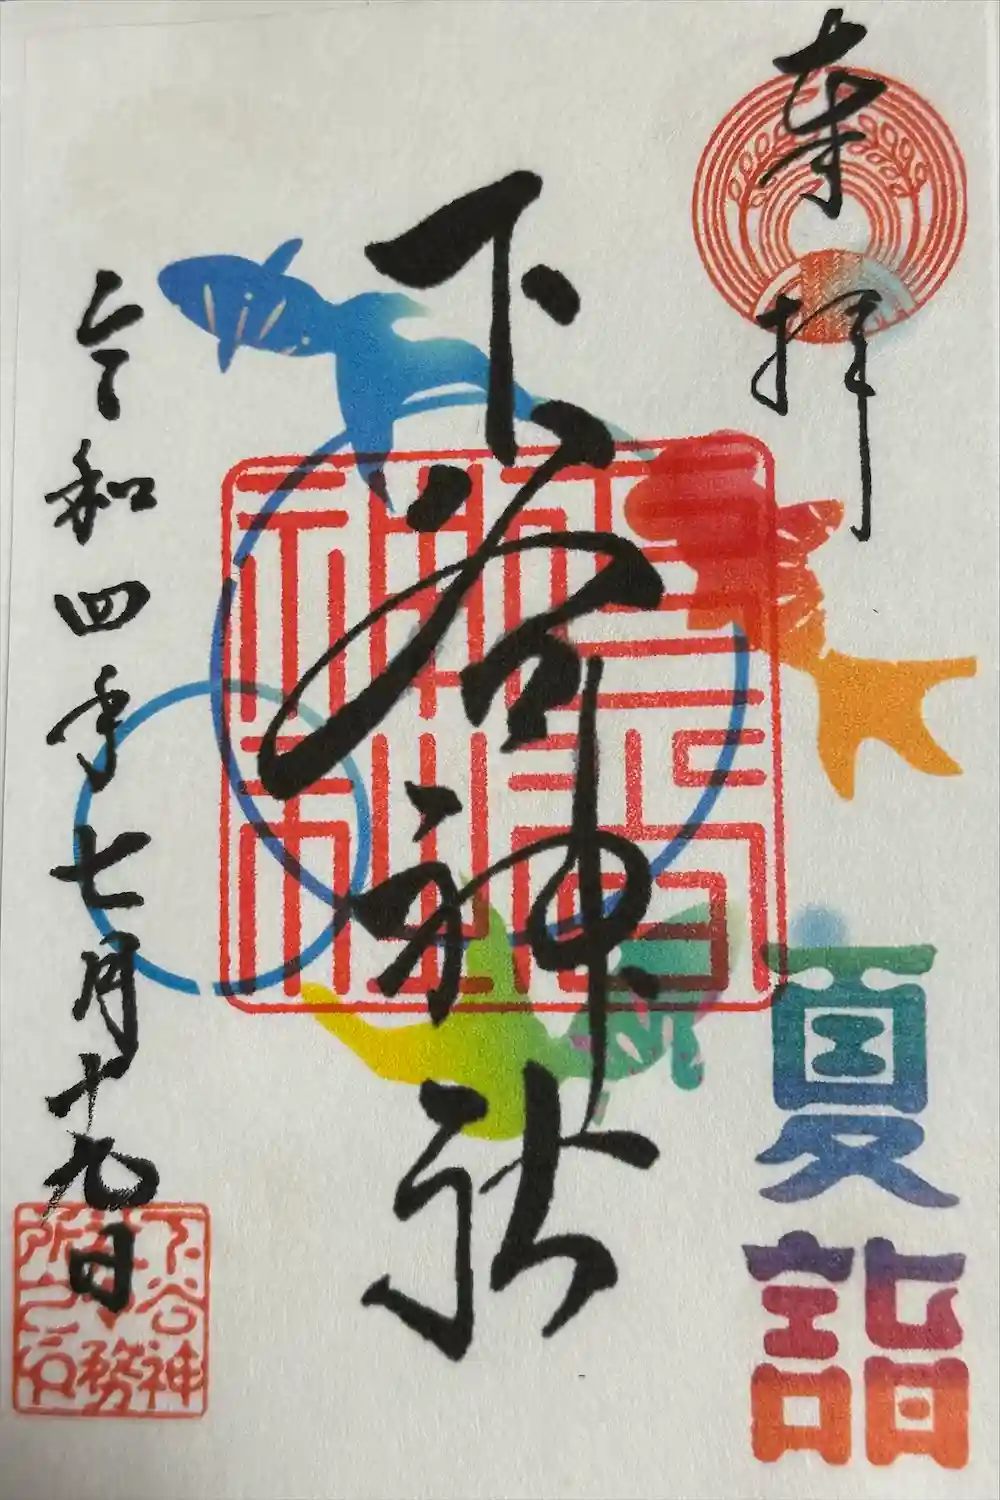 奉拝
夏詣
下谷神社
令和四年七月十九日
下谷神
社務
所之印